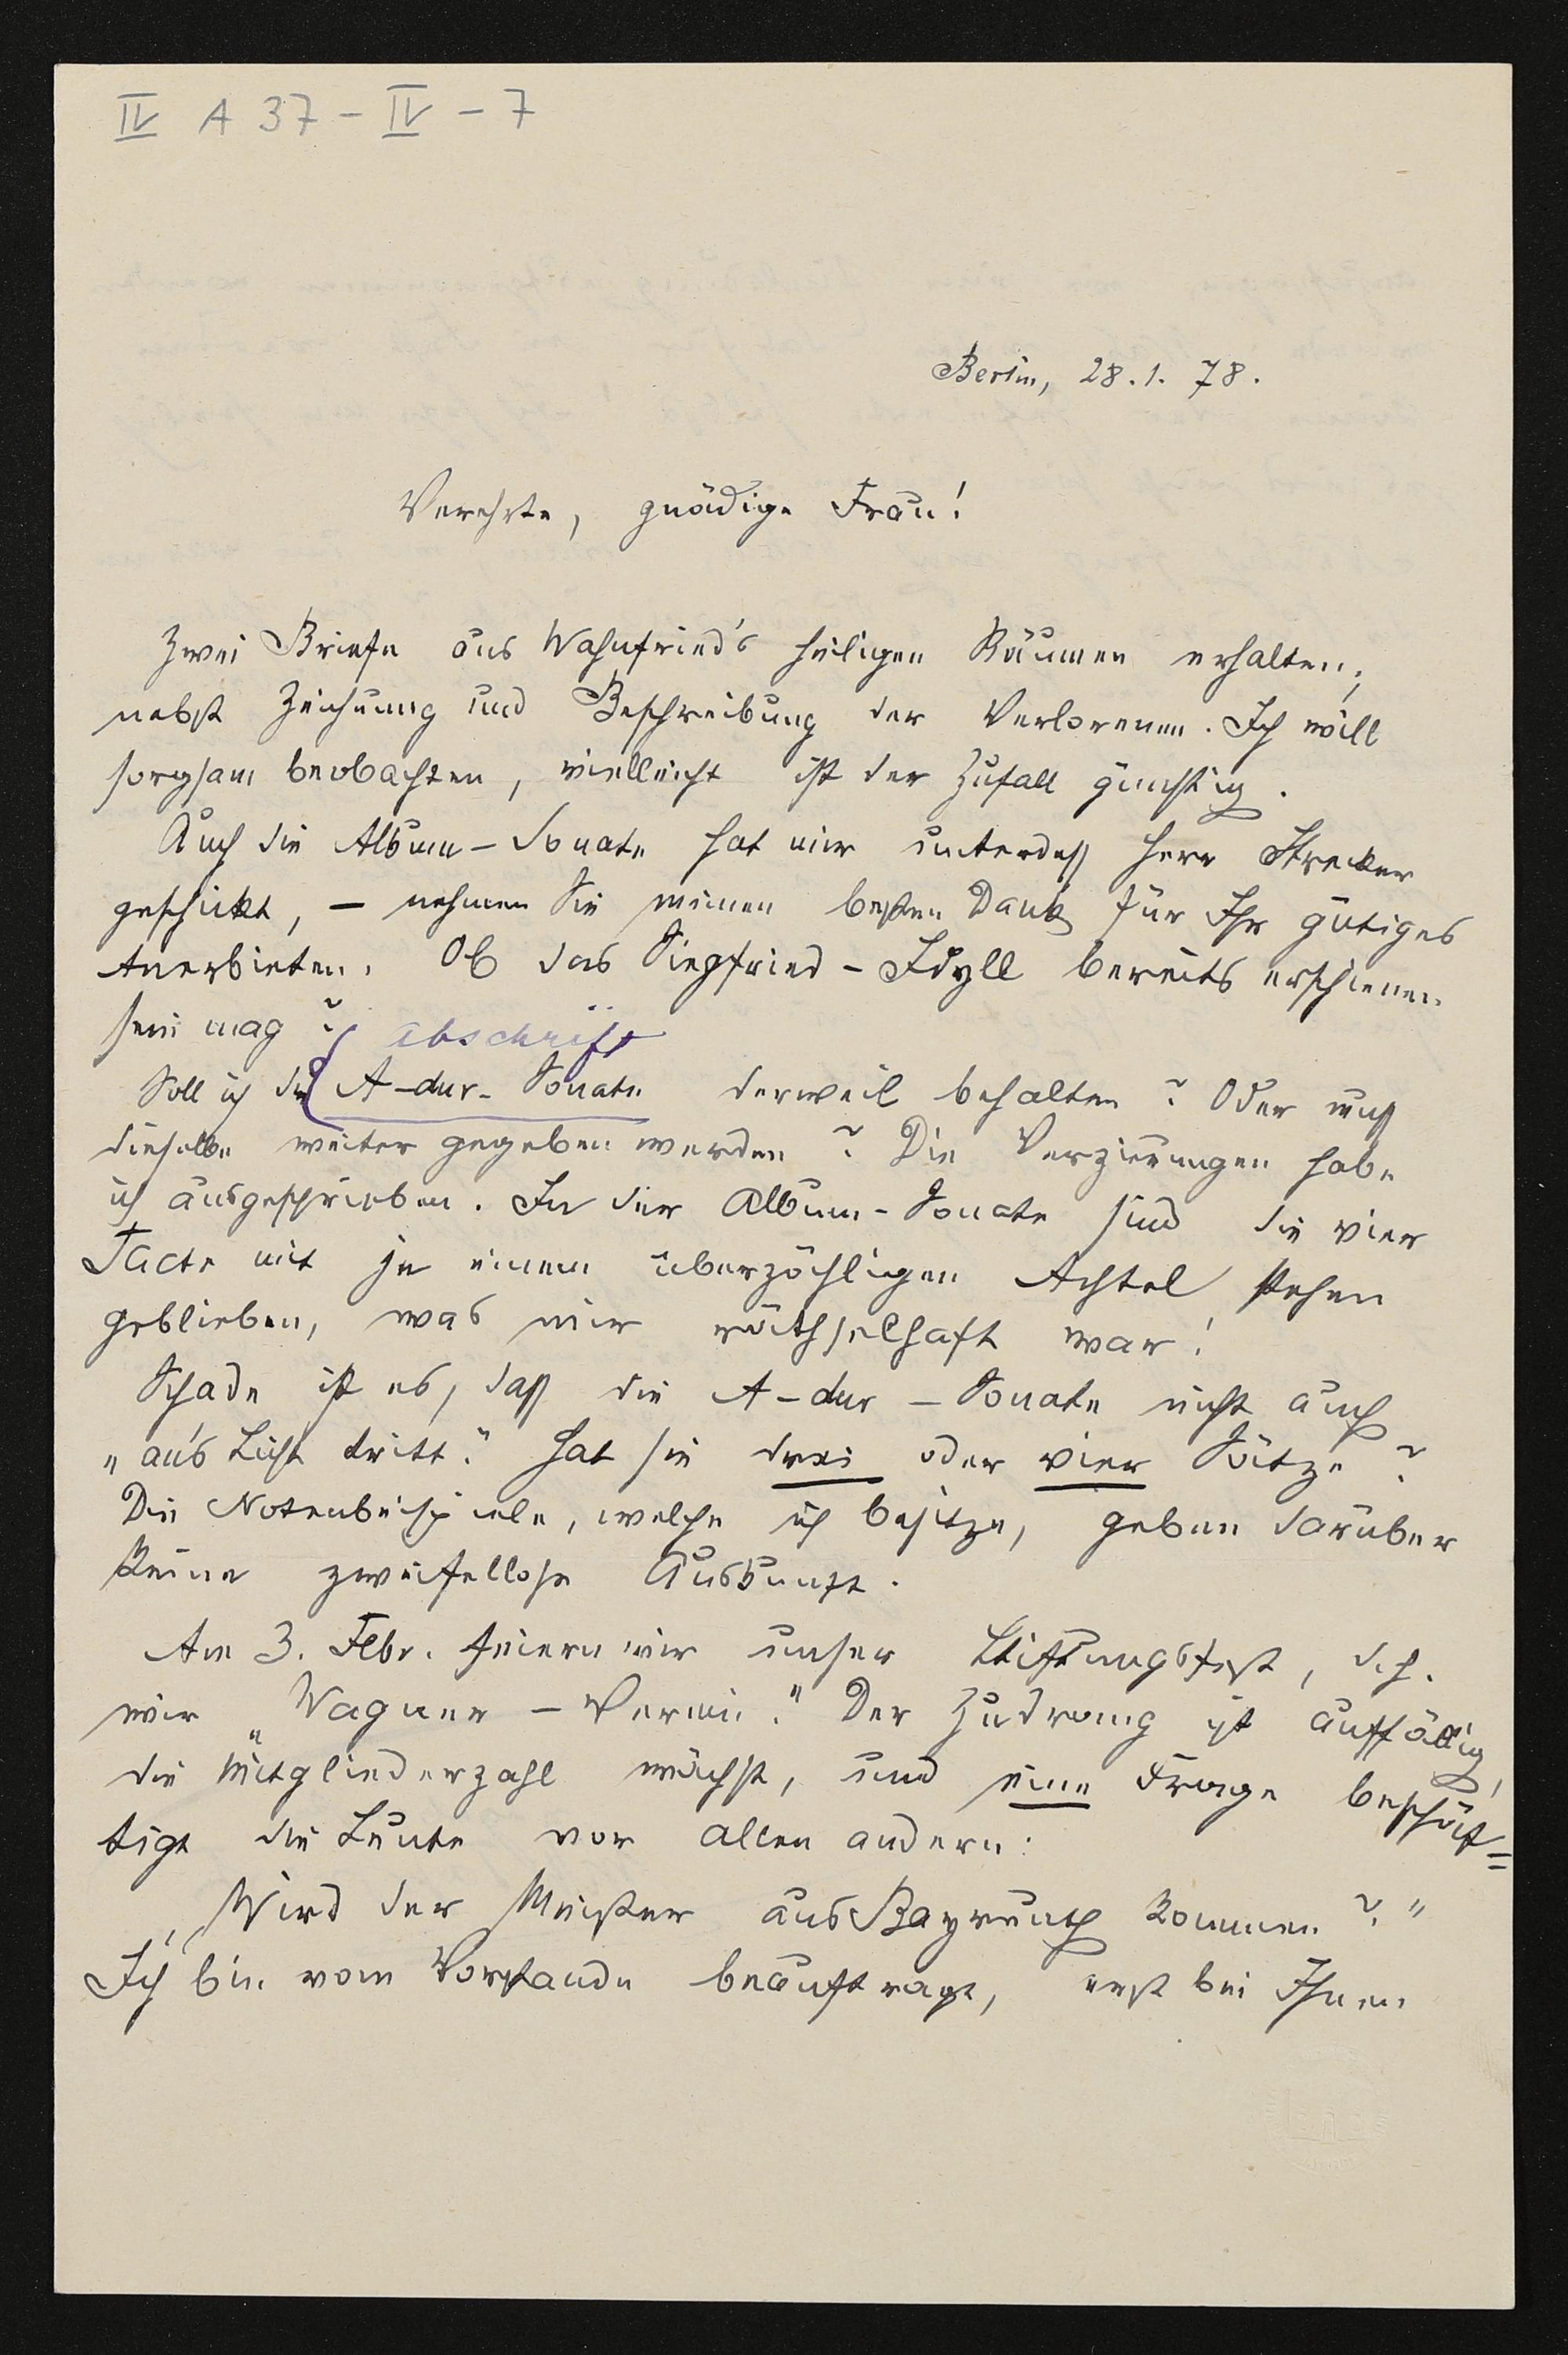 IV A 37 - IV - 7
Berlin, 28. 1. 78.
Verehrte, gnädige Frau!
Zwei Briefe aus Wahnfried's heiligen Räumen erhalten,
nebst Zeichnung und Beschreibung der Verlorenen. Ich will
sorgsam beobachten, vielleicht ist der Zufall günstig.
Auch die Album-Sonate hat mir unterdess Herr Strecker
geschickt, – nehmen Sie meinen besten Dank für Ihr gütiges
Anerbieten. Ob das Siegfried-Idyll bereits erschienen
sein mag?
Abschrift
Soll ich die A-dur-Sonate derweil behalten? Oder muss
dieselbe weiter gegeben werden? Die Verzierungen habe
ich ausgeschrieben. In der Album-Sonate sind die vier
Tacte mit je einem überzähligen Achtel stehen
geblieben, was mir räthselhaft war!
Schade ist es, dass die A-dur-Sonate nicht auch
„an's Licht tritt." Hat sie drei oder vier Sätze?
Die Notenbeispiele, welche ich besitze, geben darüber
keine zweifellose Auskunft.
Am 3. Febr. feiern wir unser Stiftungsfest, d. h.
wir „Wagner-Verein." Der Zudrang ist auffällig,
die Mitgliederzahl wächst, und eine Frage beschäf=
tigt die Leute vor allen andern:
„Wird der Meister aus Bayreuth kommen?"
Ich bin vom Vorstande beauftragt, erst bei Ihnen